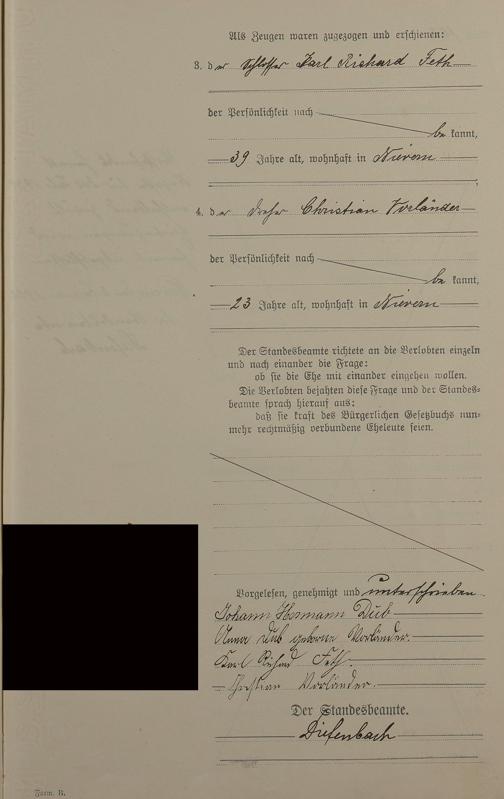 Als Zeugen waren zugezogen und erschienen:
3. der Schlosser Karl Richard Feth
der Persönlichkeit nach
be kannt,
39 Jahre alt, wohnhaft in Nievern
4. der Dreher Christian Vorländer
der Persönlichkeit nach
be kannt,
23 Jahre alt, wohnhaft in Nievern
Der Standesbeamte richtete an die Verlobten einzeln
und nach einander die Frage:
ob sie die Ehe mit einander eingehen wollen.
Die Verlobten bejahten diese Frage und der Standes-
beamte sprach hierauf aus:
daß sie kraft des Bürgerlichen Gesetzbuchs nun-
mehr rechtmäßig verbundene Eheleute seien.
Vorgelesen, genehmigt und unterschrieben
Johann Hermann Dub
Anna Dub geborene Vorländer.
Karl Richard Feth.
Christian Vorländer.
Der Standesbeamte.
Diefenbach
Form. B.